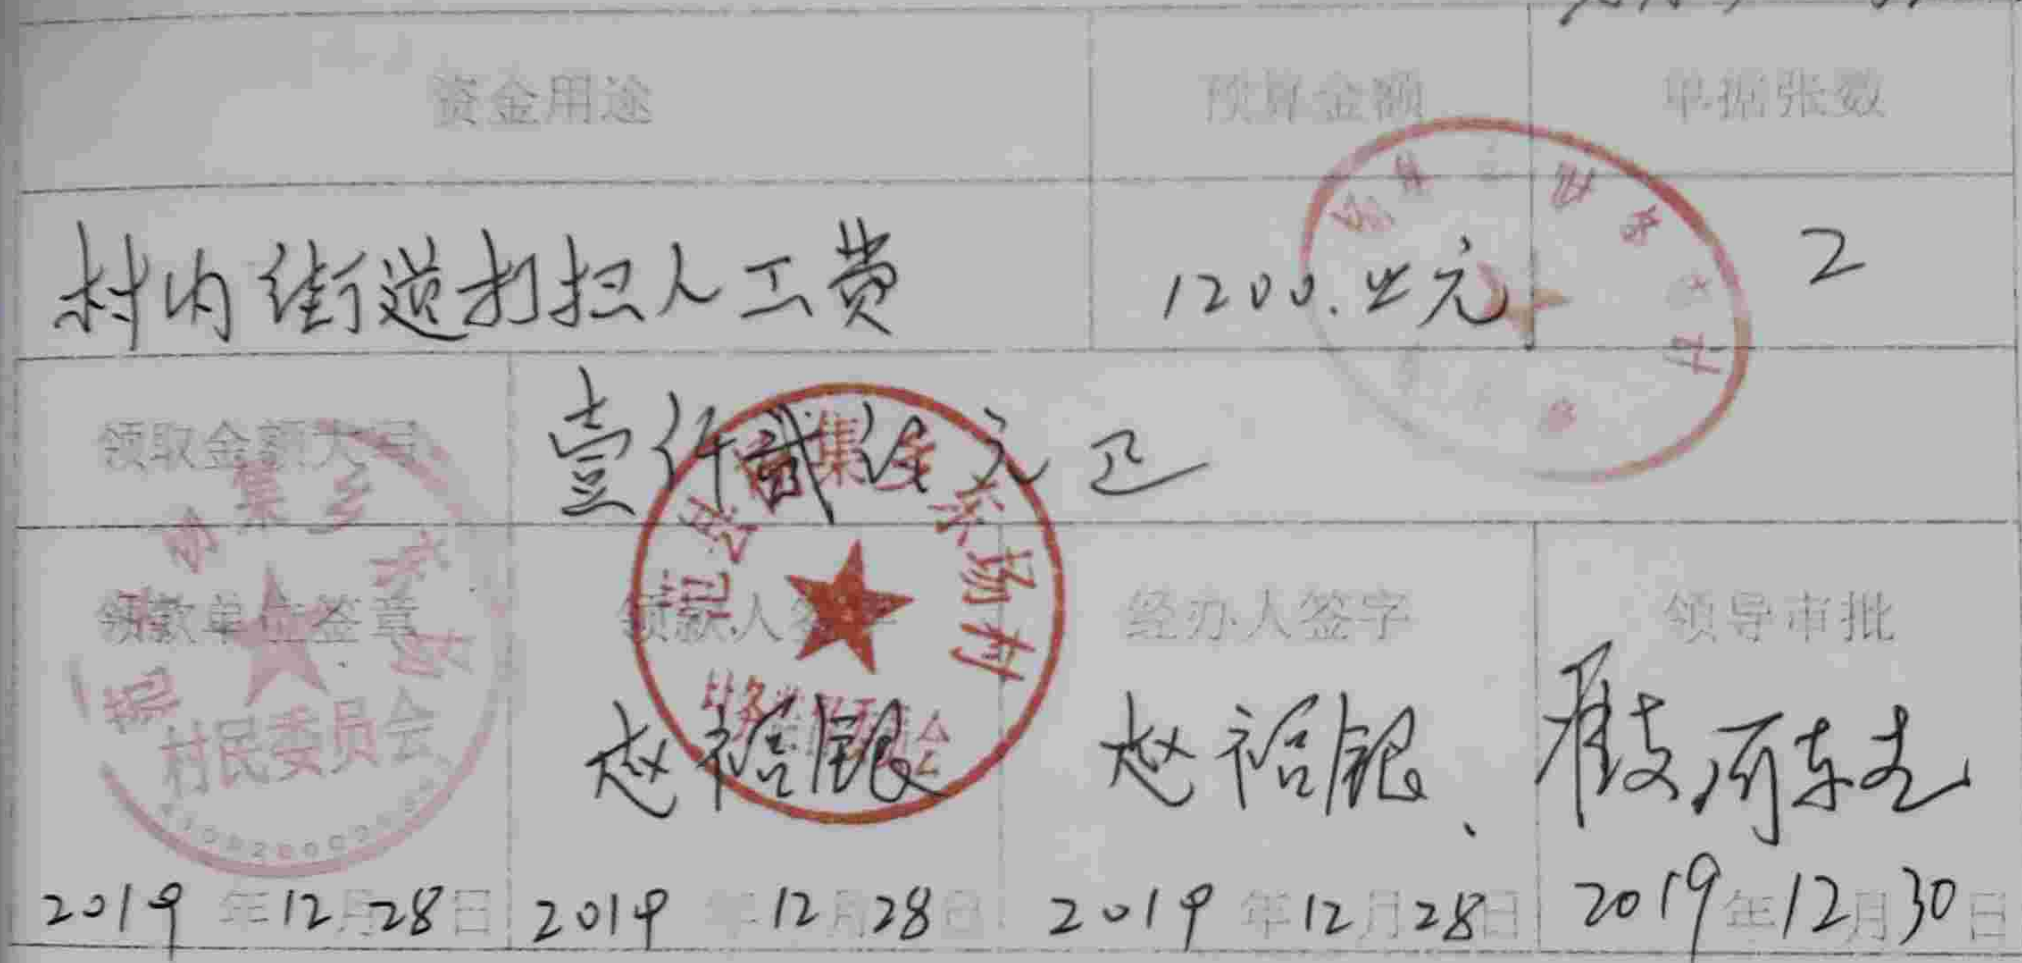 资金用途 预算金额 单据张数
村内街道打扫人工费 1200.00元 2
领取金额大写 壹仟贰佰元正
领款单位签章 领款人签字 经办人签字 领导审批
集乡
村民委员会
杞县 集乡 场村
赵裕银 赵裕银 同意
2019年12月28日 2019年12月28日 2019年12月28日 2019年12月30日